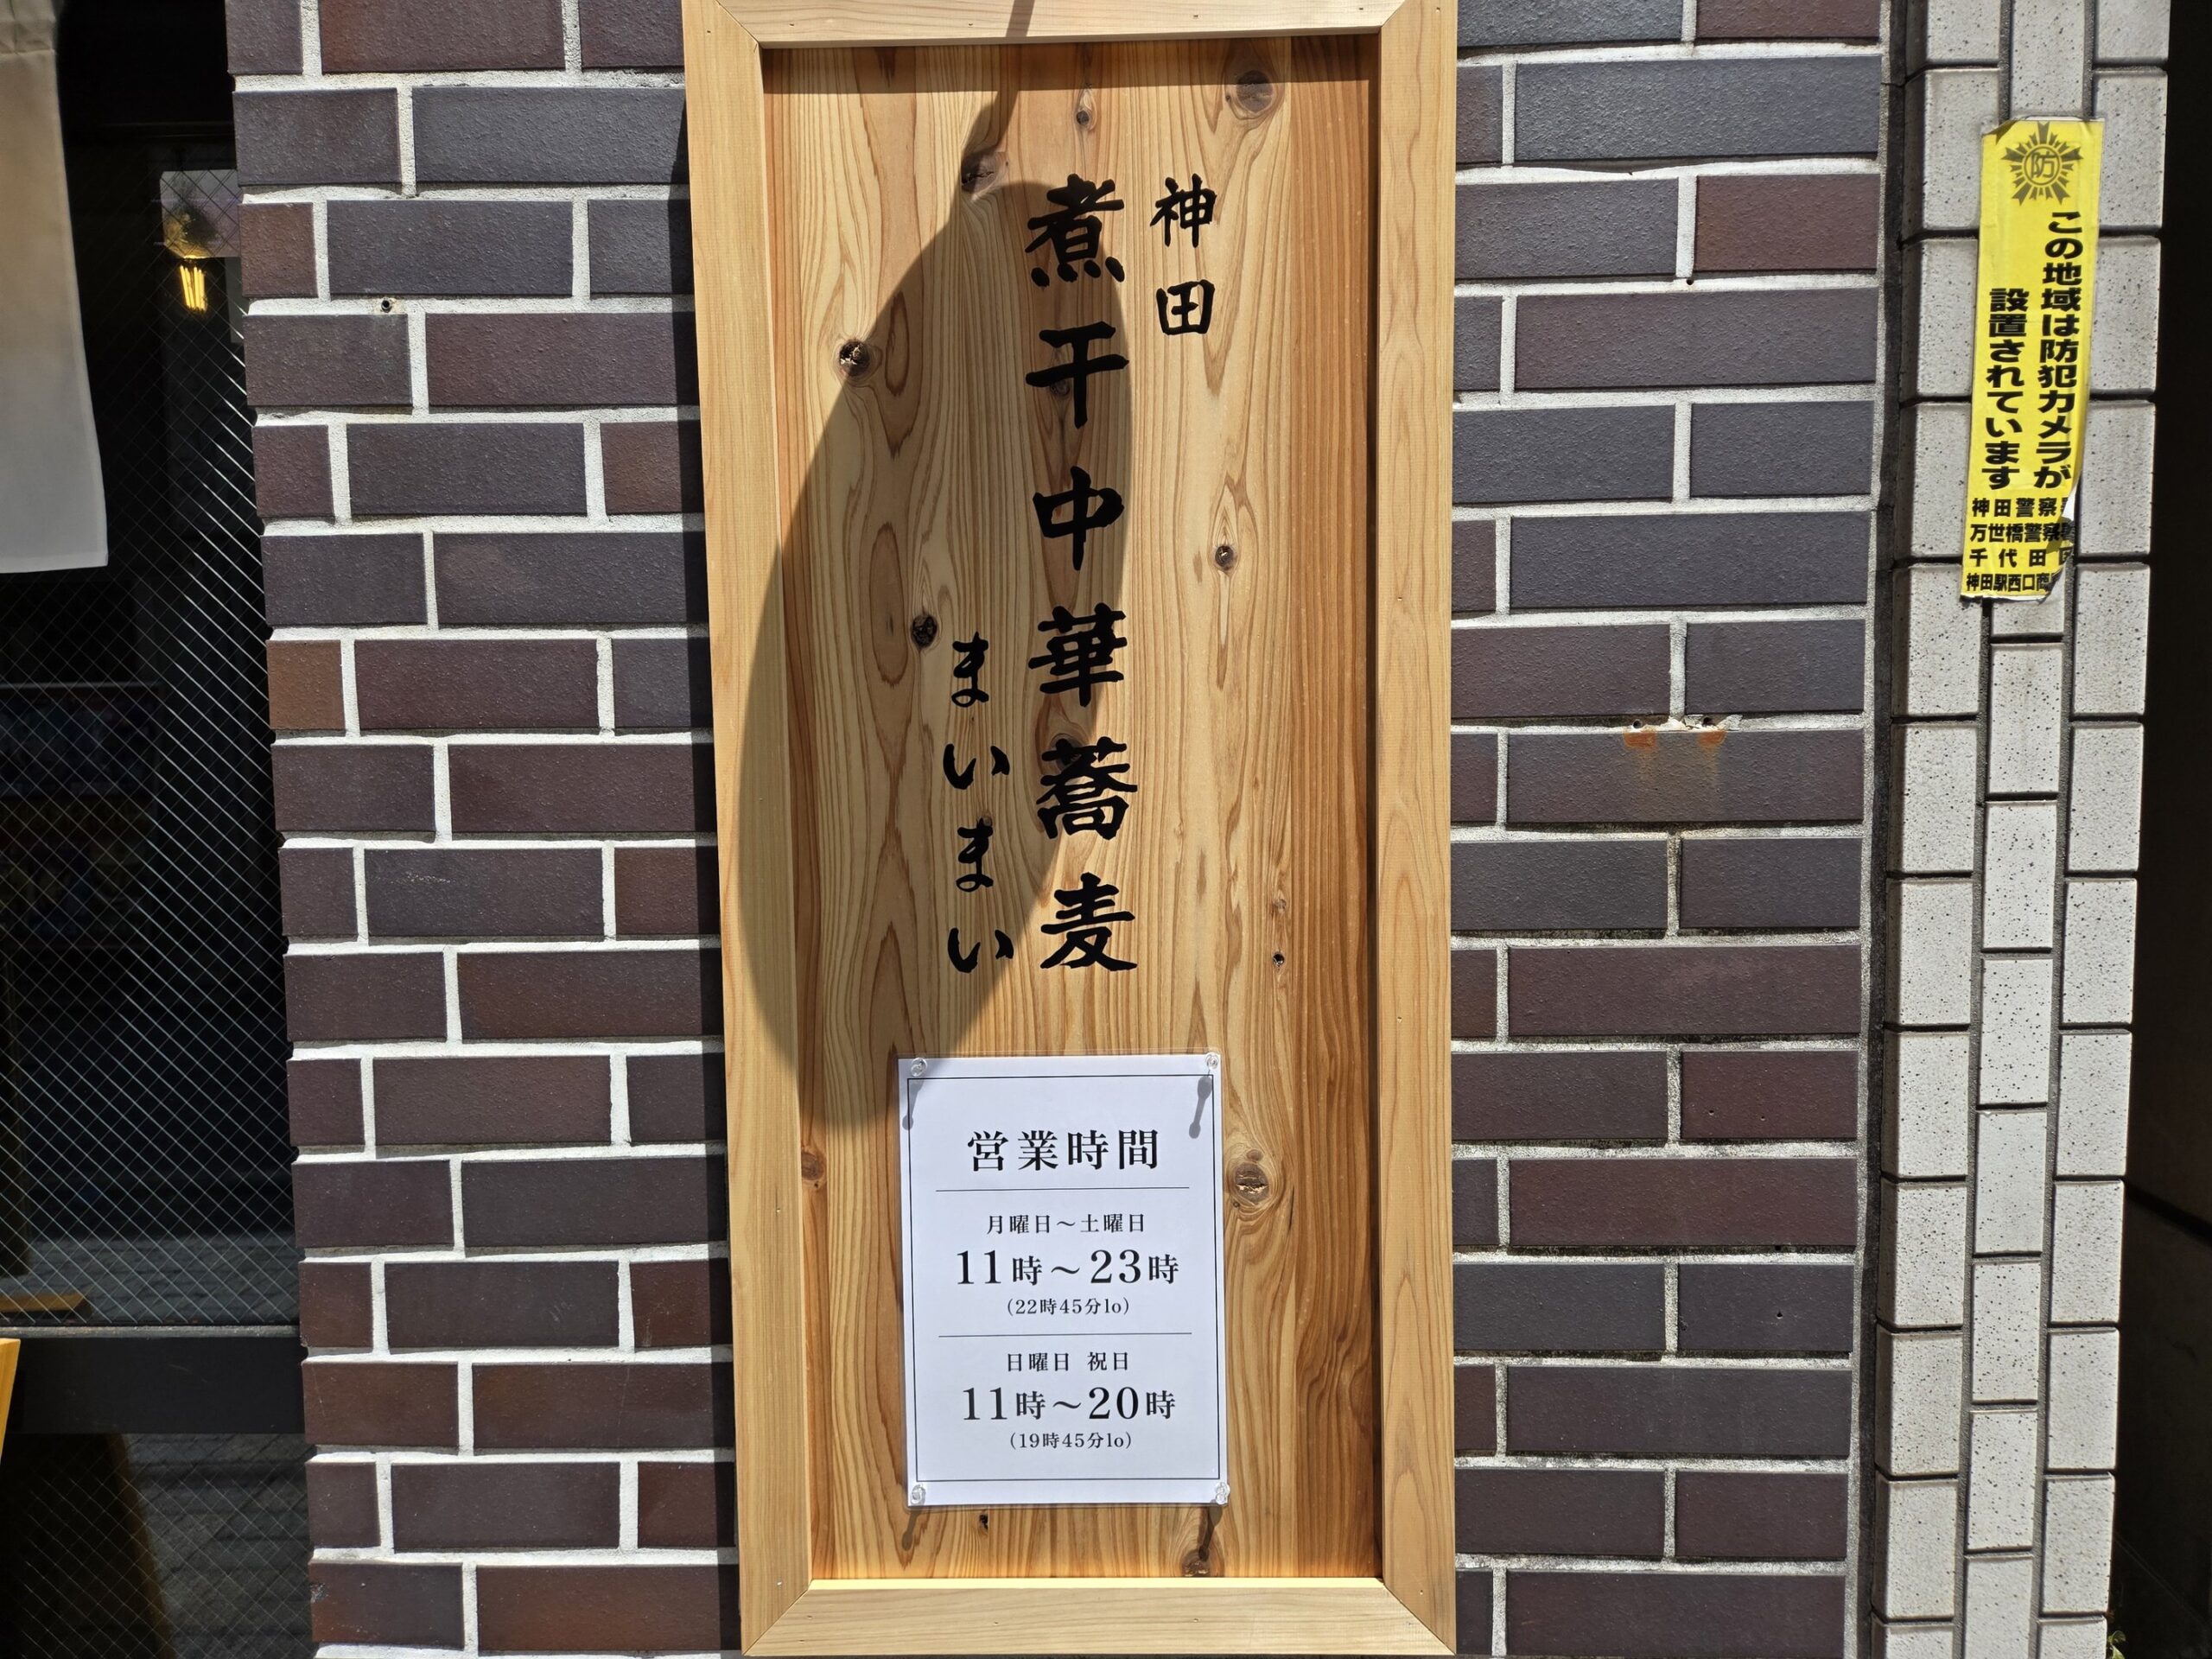 神田
煮干中華蕎麦
まいまい
営業時間
月曜日〜土曜日
11時〜23時
(22時45分lo)
日曜日 祝日
11時〜20時
(19時45分lo)
防
この地域は防犯カメラが
設置されています
神田警察
万世橋警察
千代田
神田駅西口商